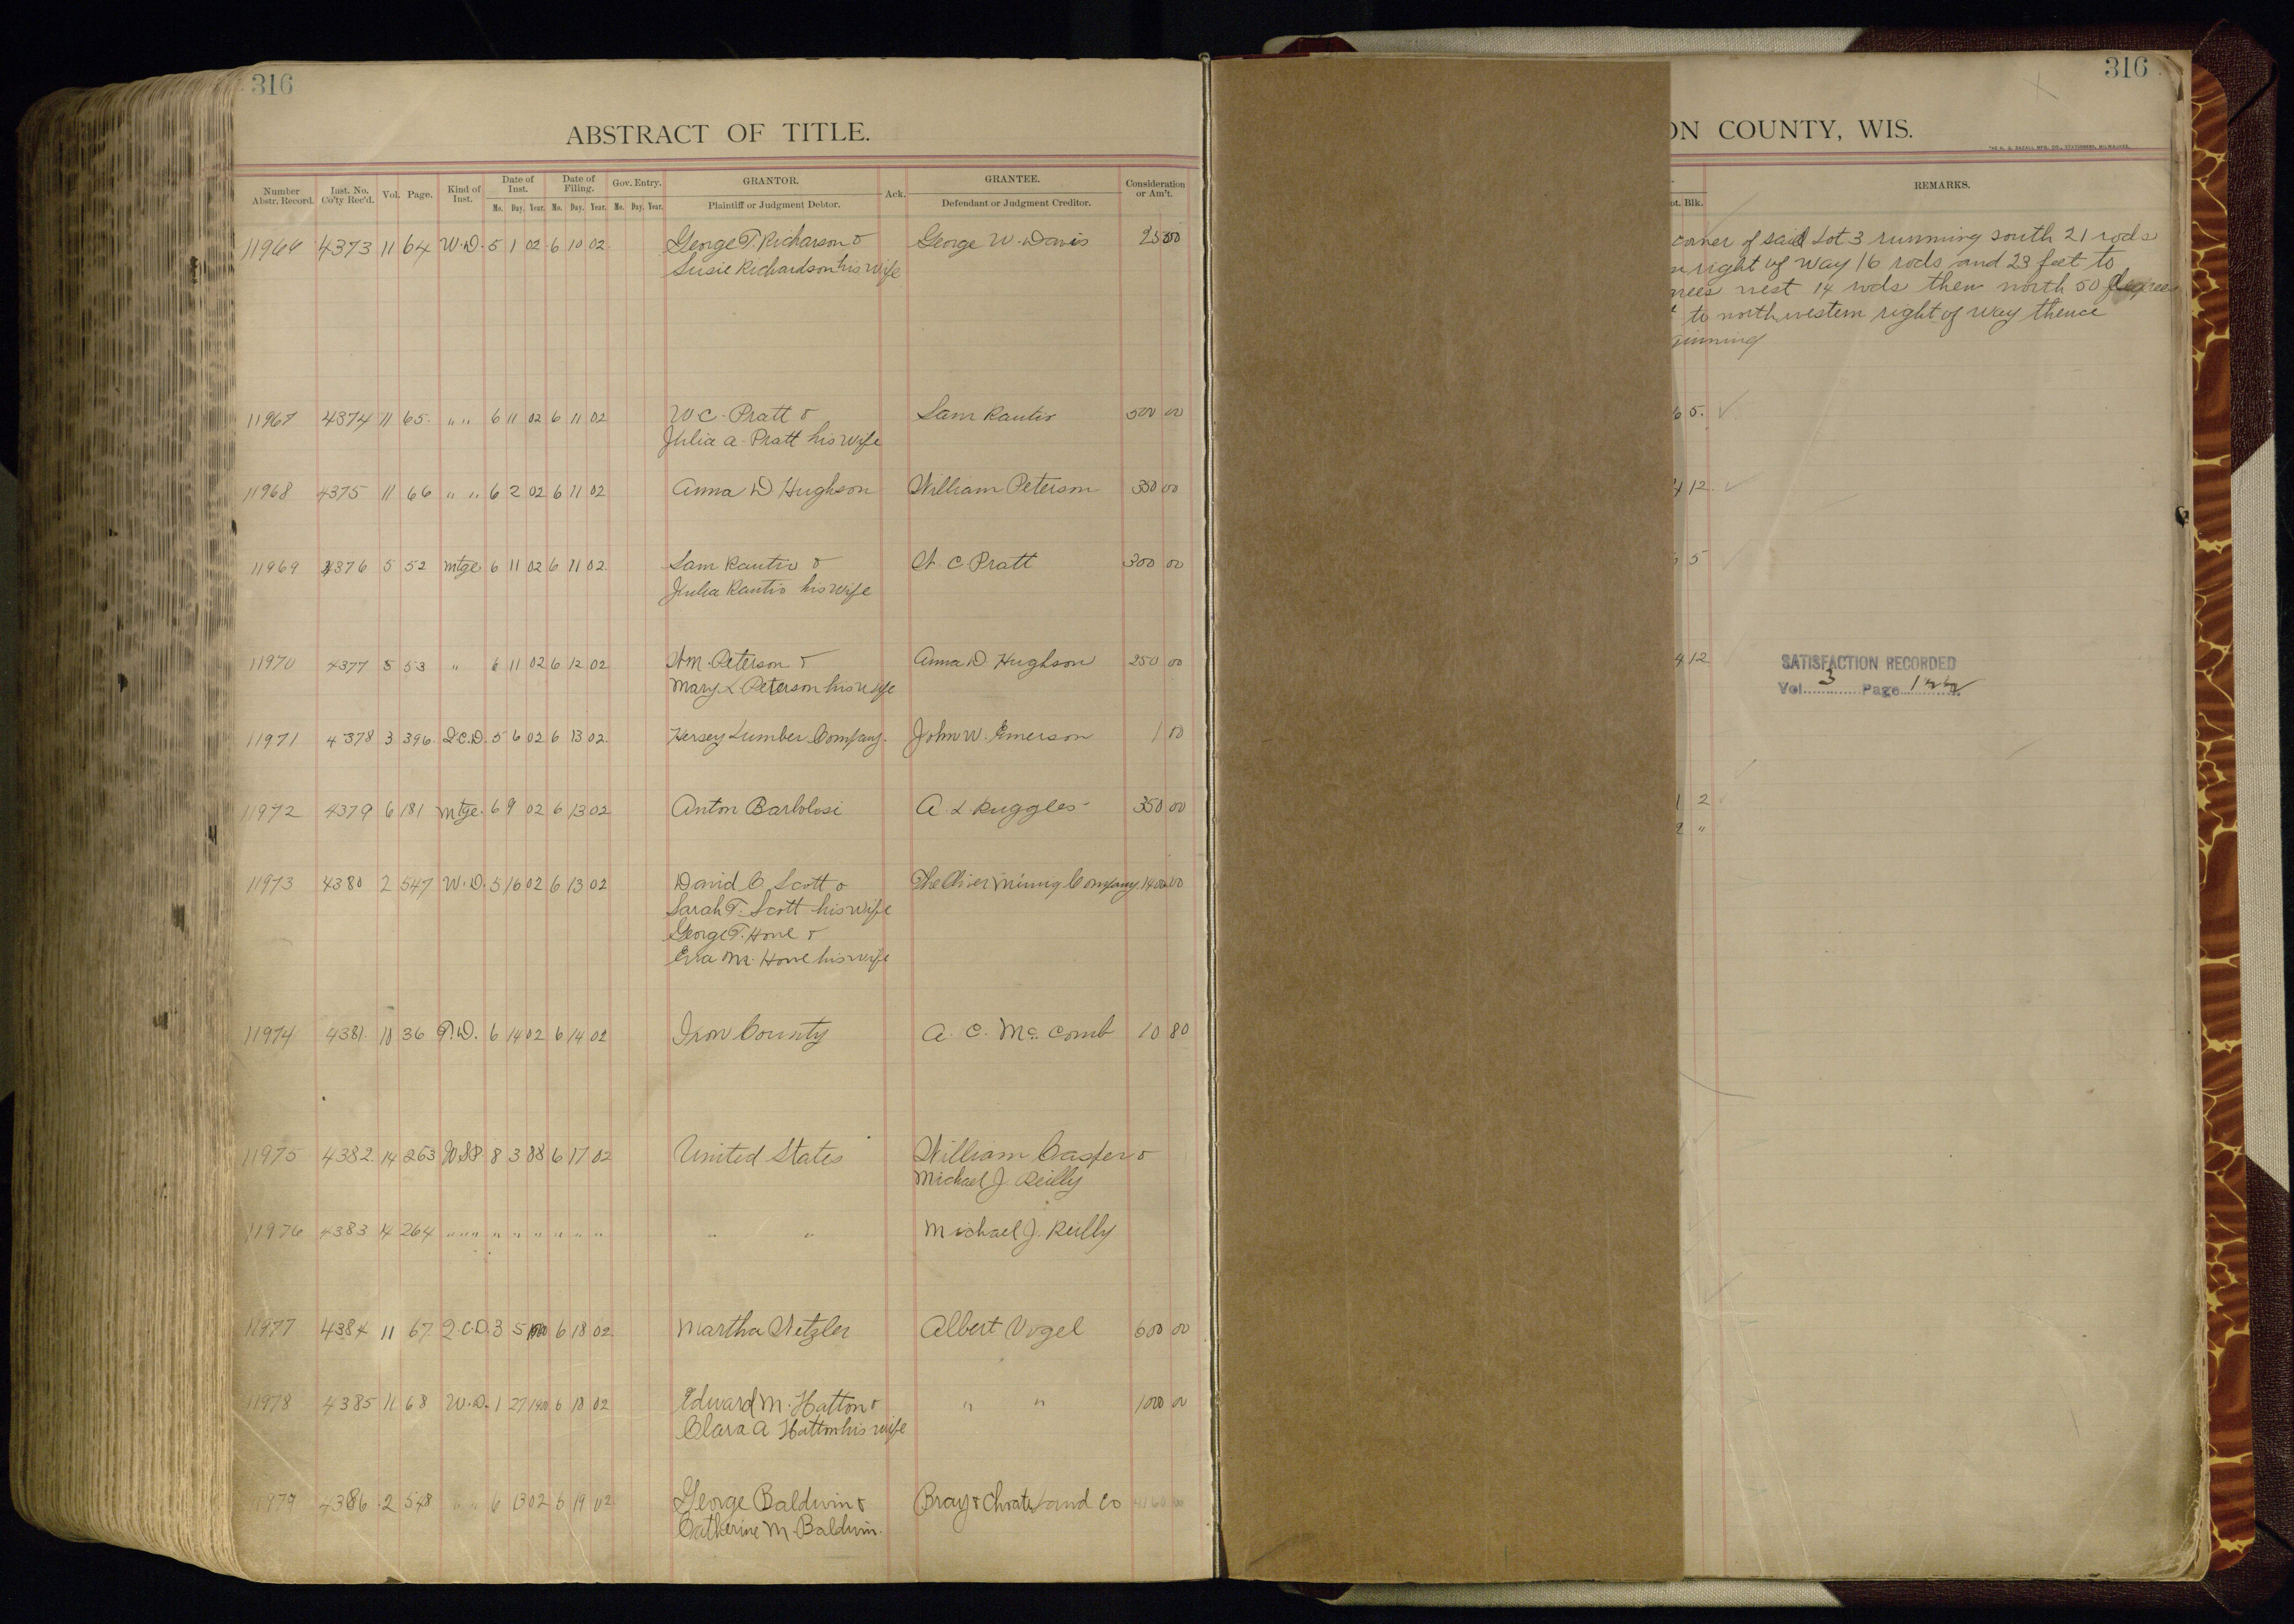 316
ABSTRACT OF TITLE.
Number Abstr. Record. Inst. No. Co'ty Rec'd. Vol. Page. Kind of Inst. Date of Inst. Mo. Day. Year. Date of Filing. Mo. Day. Year. Gov. Entry. Mo. Day. Year. GRANTOR. Plaintiff or Judgment Debtor. Ack. GRANTEE. Defendant or Judgment Creditor. Consideration or Am't.
11966 4373 11 64 W.D. 5 1 02 6 10 02 George T. Richarson & George W. Davis 25 00
Susie Richardson his wife
11967 4374 11 65. " " 6 11 02 6 11 02 W C. Pratt & Sam Rautio 500 00
Julia A. Pratt his wife
11968 4375 11 66 " " 6 2 02 6 11 02 Anna D Hughson William Peterson 350 00
11969 4376 5 52 Mtge 6 11 02 6 11 02. Sam Rautio & W. C. Pratt 300 00
Julia Rautio his wife
11970 4377 5 53 " 6 11 02 6 12 02 Wm. Peterson & Anna D. Hughson 250 00
Mary L Peterson his wife
11971 4378 3 396. Q.C.D. 5 6 02 6 13 02. Hersey Lumber Company. John W. Emerson 1 00
11972 4379 6 181 Mtge. 6 9 02 6 13 02 Anton Barbolosi A. L Ruggles 350 00
11973 4380 2 547 W.D. 5 16 02 6 13 02 David C Scott & The Oliver Mining Company 1400 00
Sarah T. Scott his wife
George T. Howe &
Eva M. Howe his wife
11974 4381. 10 36 T.D. 6 14 02 6 14 02 Iron County A. C. Mc Comb 10 80
11975 4382. 14 263 8 3 88 6 17 02 United States William Casper &
Michael J. Reilly
11976 4383 14 264 " " " " " " " " " " " Michael J. Reilly
11977 4384 11 67 Q.C.D. 3 5 1900 6 18 02. Martha Wetzler Albert Vogel 600 00
11978 4385 11 68 W.D. 1 27 1900 6 18 02 Edward M. Hatton & " " 1000 00
Clara A Hatton his wife
11979 4386 2 548 " " 6 13 02 6 19 02 George Baldwin & Bray & Choate Land Co
Catherine M. Baldwin.
316
ON COUNTY, WIS.
THE H. G. RAZALL MFG. CO., STATIONERS, MILWAUKEE.
ot. Blk. REMARKS.
corner of said Lot 3 running south 21 rods
right of way 16 rods and 23 feet to
rees west 14 rods then north 50 degrees
to northwestern right of way thence
ginning
6 5.
4 12.
5
4 12
SATISFACTION RECORDED
Vol. 3 Page
1 2
2 "